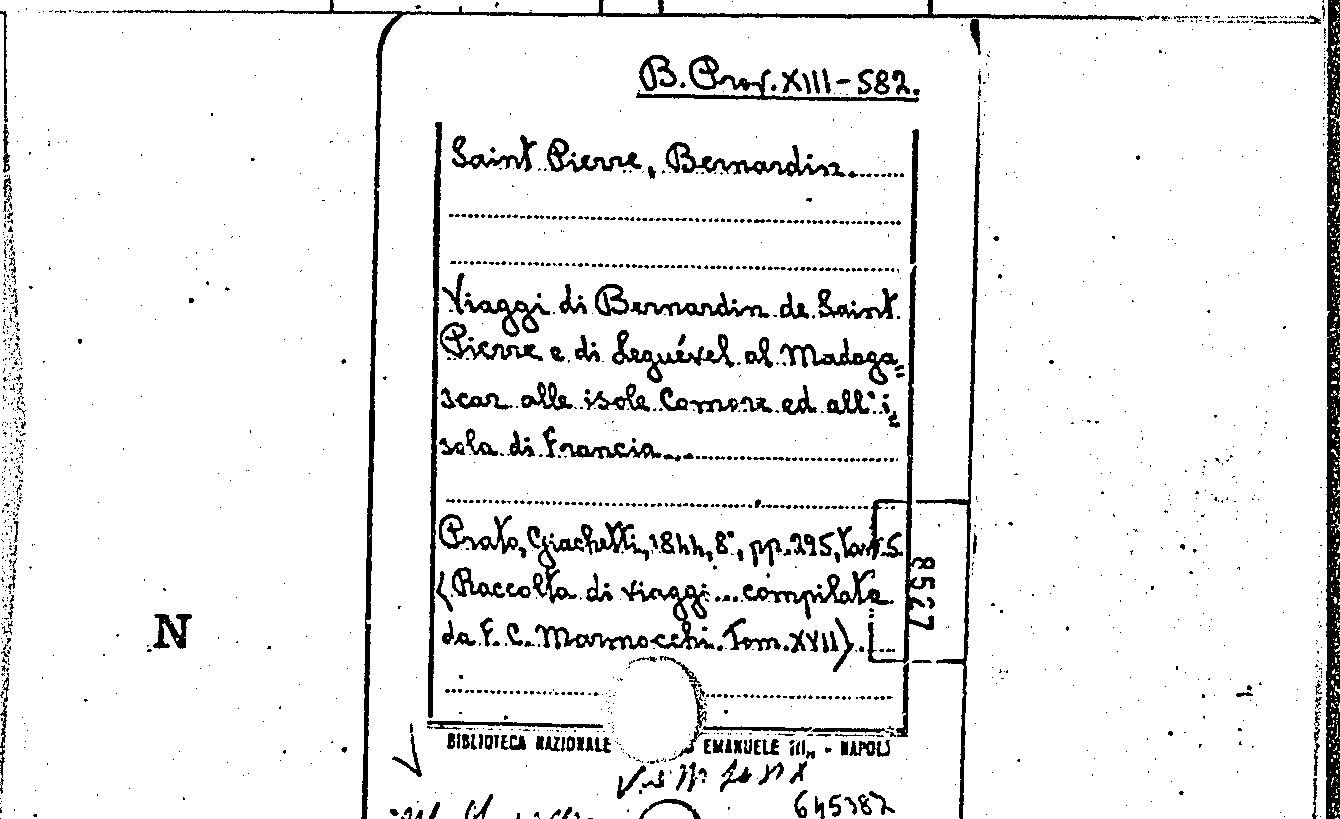 B. Prov. XIII-582.
Saint Pierre, Bernardin.
Viaggi di Bernardin de Saint
Pierre e di Leguével al Madaga=
scar alle isole Comore ed all'i=
sola di Francia...
Prato, Giachetti, 1844, 8°, pp. 295, tav. 5
(Raccolta di viaggi... compilata
da F. C. Marmocchi. Tom. XVII).
8527
N
BIBLIOTECA NAZIONALE EMANUELE III„ - NAPOLI
645387